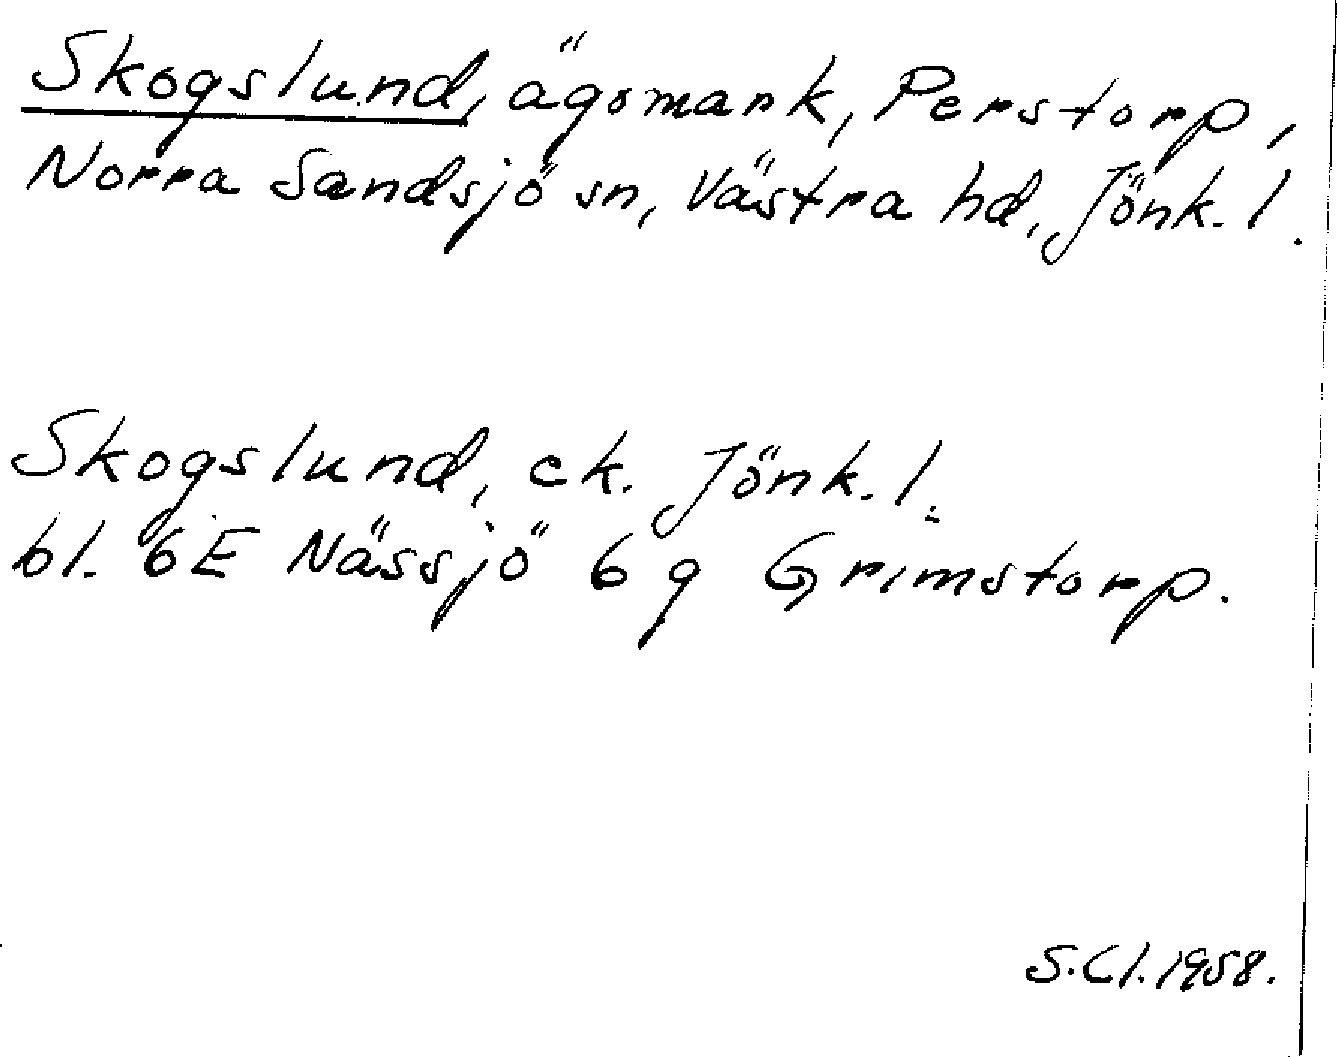 Skogslund, ägomark, Perstorp,
Norra Sandsjö sn, Västra hd, Jönk. l.
Skogslund, ek. Jönk. l.
bl. 6E Nässjö 6 g Grimstorp.
S.Cl. 1958.